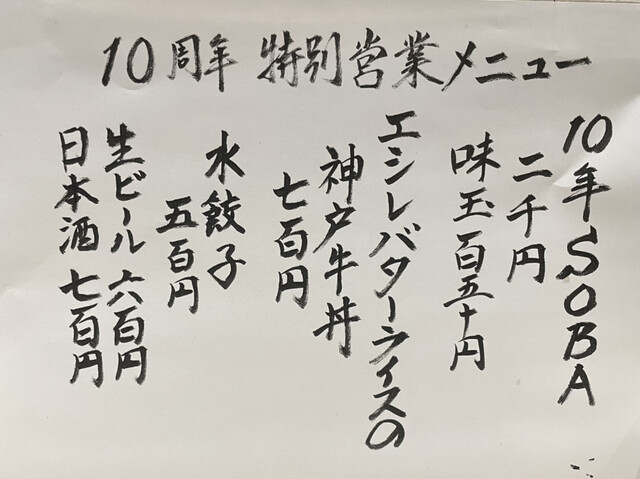 10周年 特別営業メニュー
10年SOBA
二千円
味玉百五十円
エシレバターライスの
神戸牛丼
七百円
水餃子
五百円
生ビール 六百円
日本酒 七百円